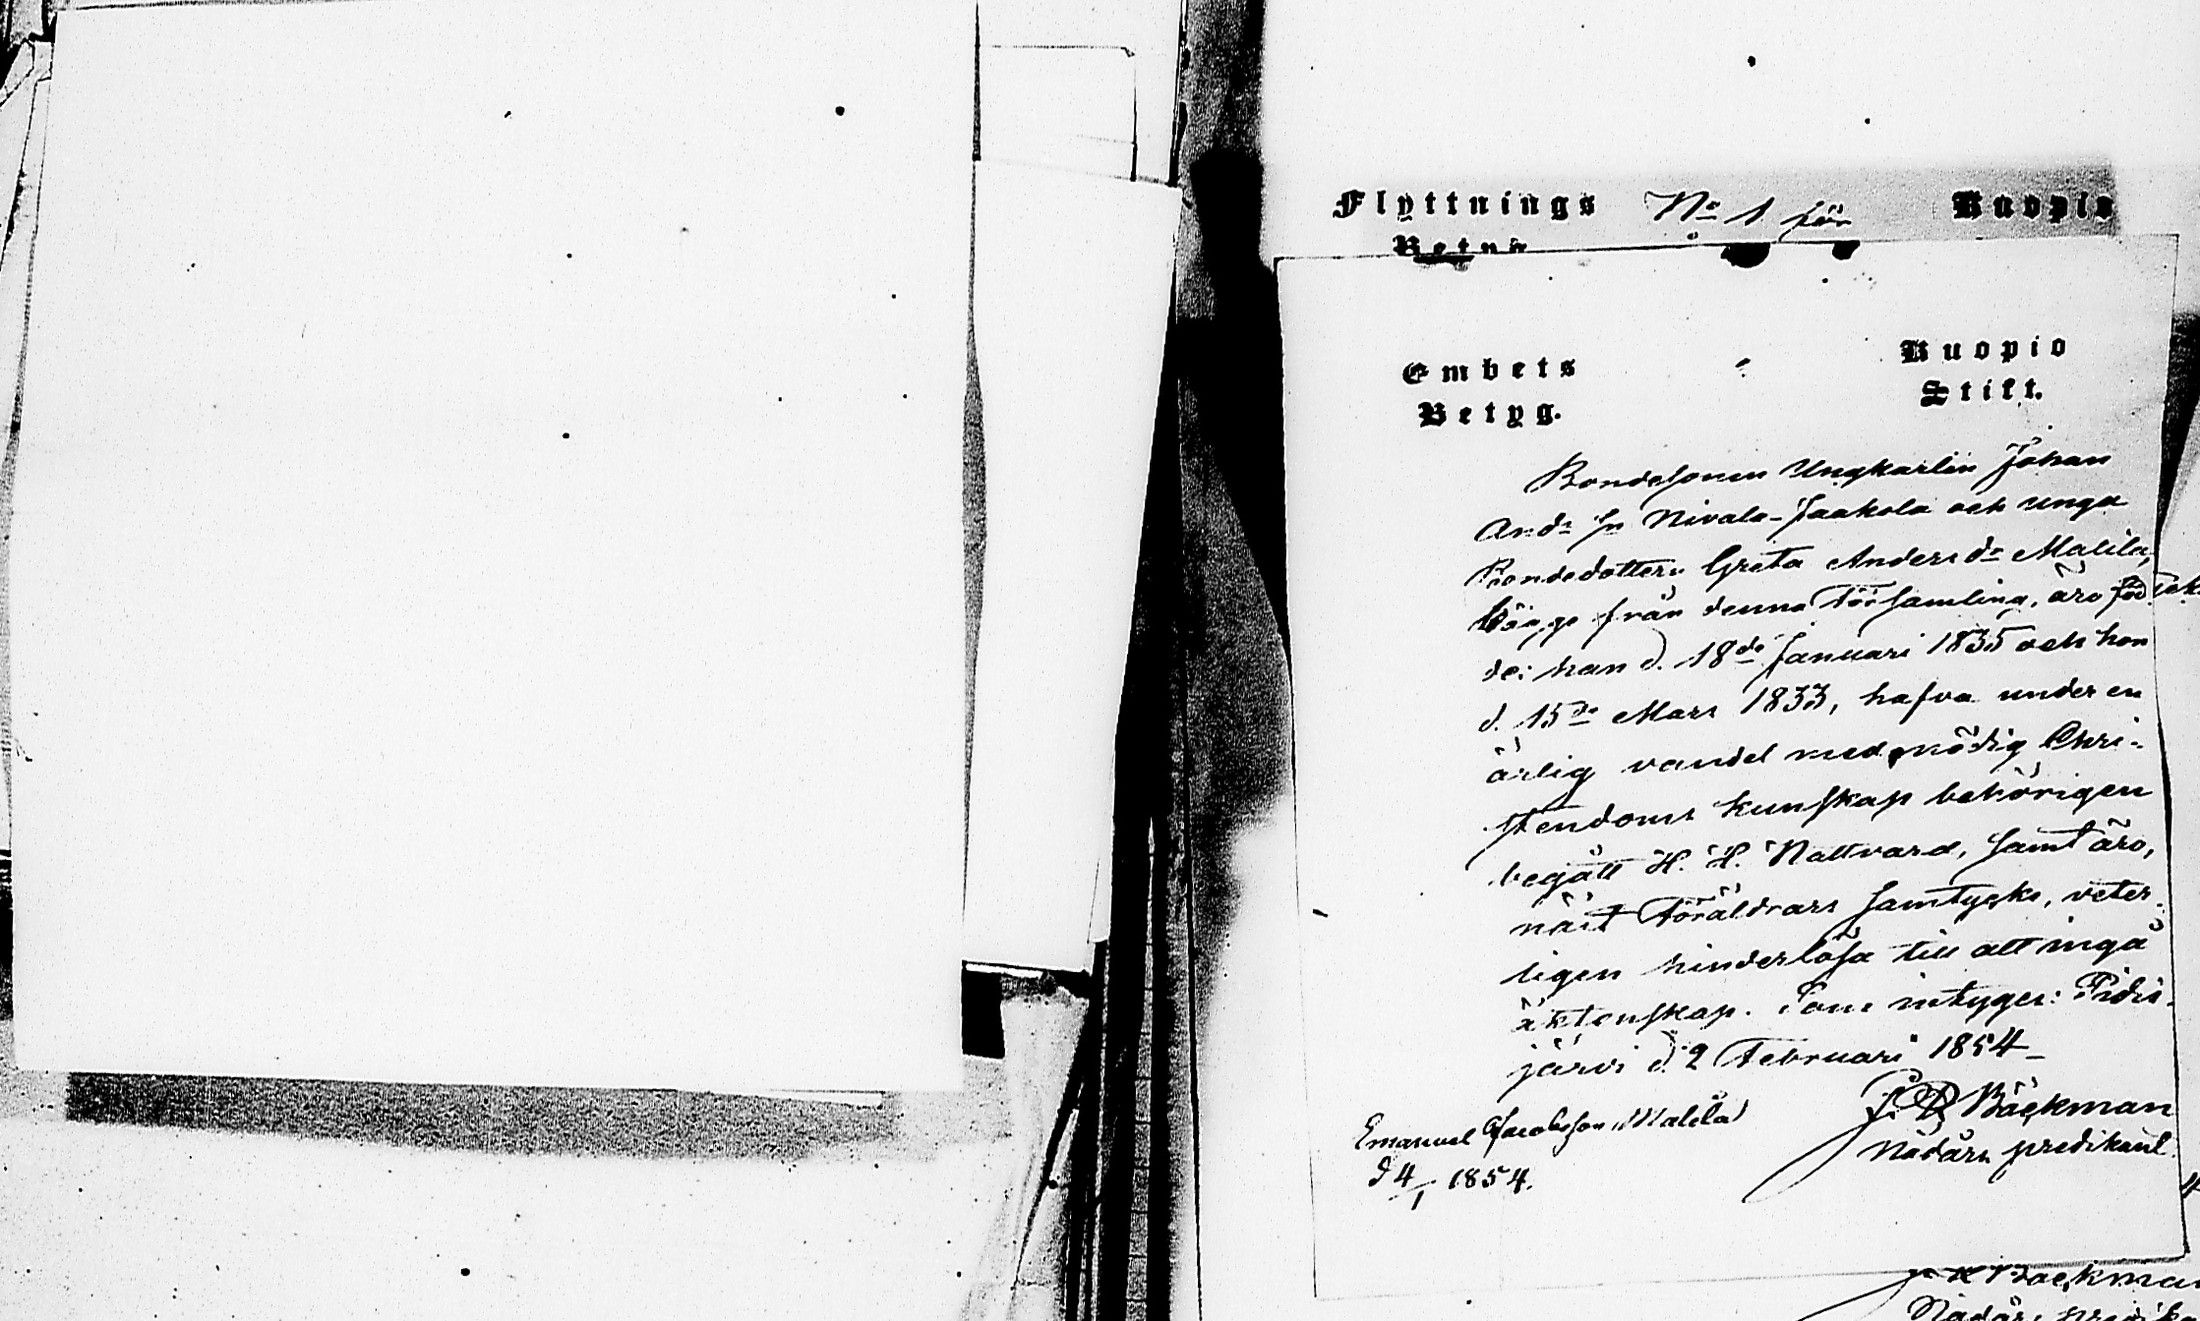 Flyttnings No 1 för Kuopio
Betyg
Embets Kuopio
Betyg. Stift.
Bondesonen Ungkarlen Johan
Andrs Sn Nivala-Jaakola och unga
Bondedottern Greta Andersdr Malila,
både från denna Församling, äro föd-
de: han d. 18de Januari 1835 och hon
d. 15de Mars 1833, hafva under en
ärlig vandel med nödig Chri-
stendoms kunskap behörigen
begått H. H. Nattvard, samt äro,
näst Föräldrars samtycke, veter-
ligen hinderlösa till att ingå
äktenskap. Som intygar: Pidis-
järvi d. 2 Februari 1854
Bäckman
Nådårs predikant.
Emanuel Jacobsson Malila
d 4/1 1854.
Backman
Nådårs predika